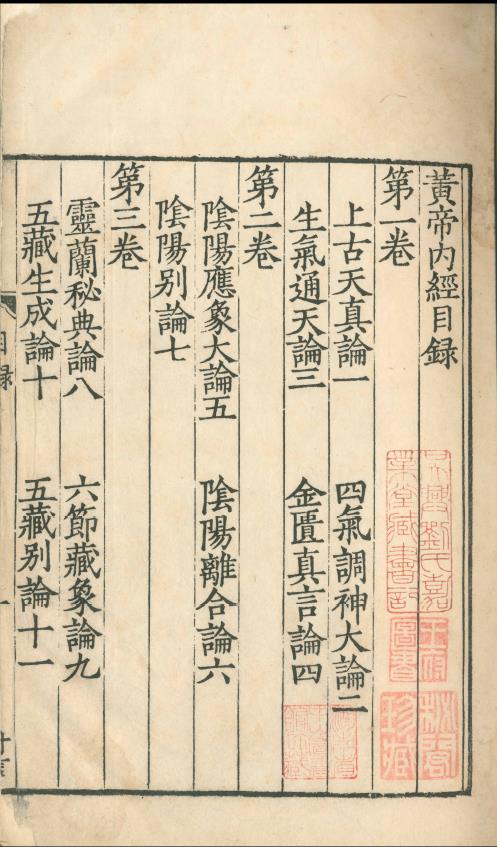 黃帝内經目録
第一卷
上古天真論一 四氣調神大論二
生氣通天論三 金匱真言論四
第二卷
陰陽應象大論五 陰陽離合論六
陰陽别論七
第三卷
靈蘭秘典論八 六節藏象論九
五藏生成論十 五藏别論十一
目録
一
吳興劉氏嘉業堂藏書記
珍藏